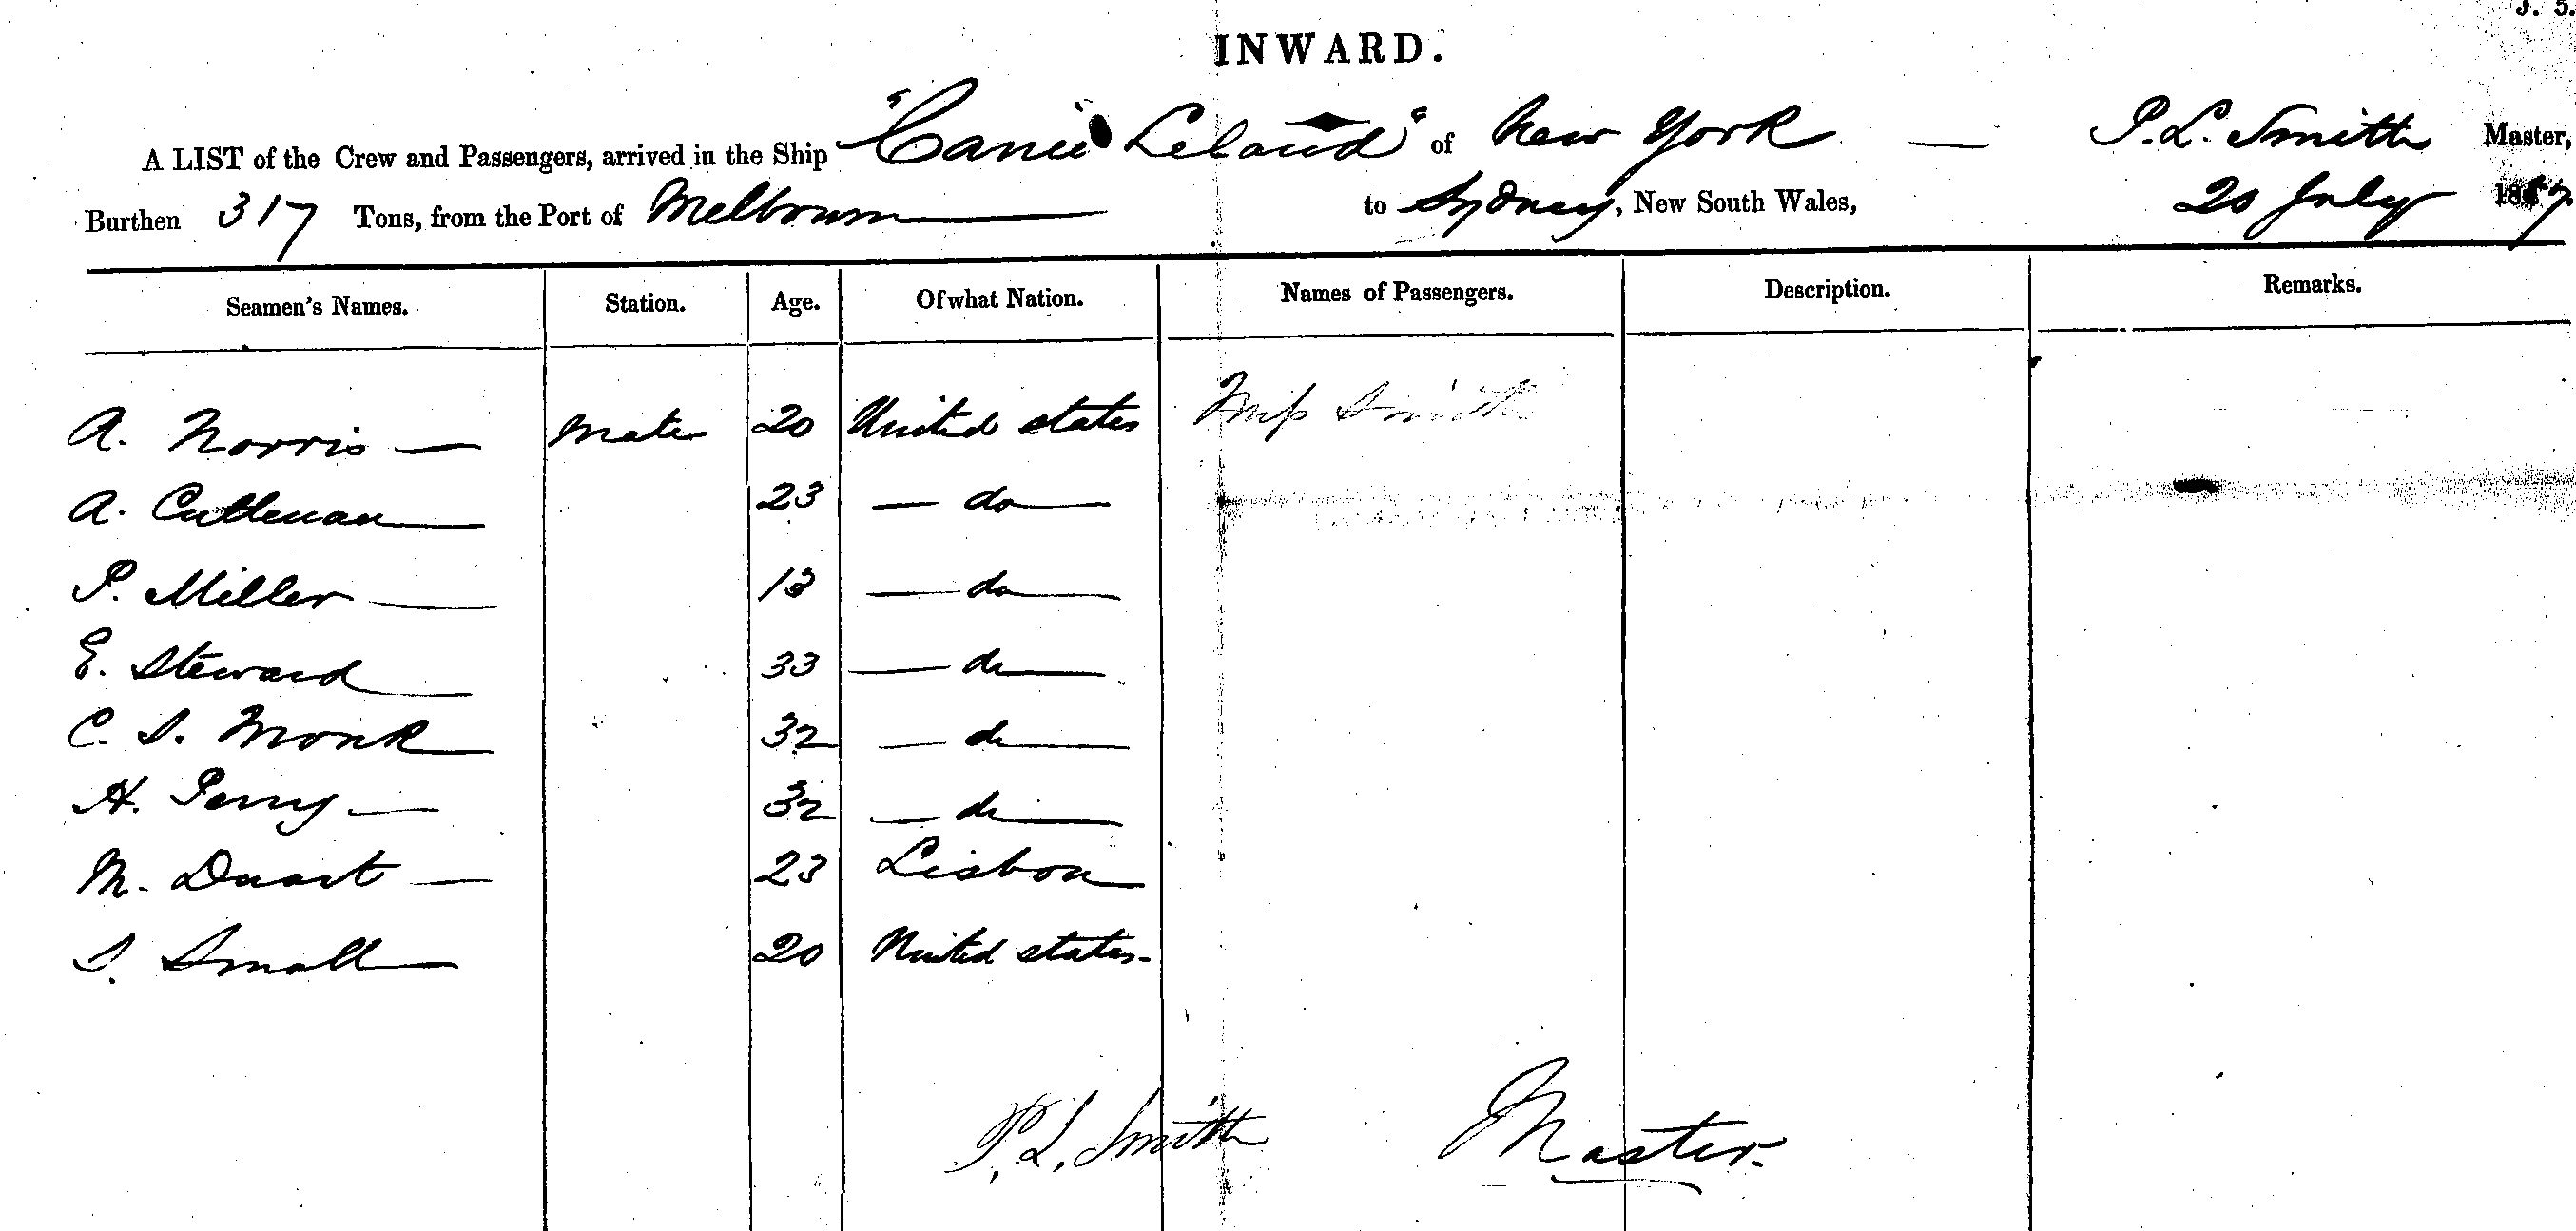 J. 5.
INWARD.
A LIST of the Crew and Passengers, arrived in the Ship "Carrie Leland" of New York — P. L. Smith Master,
Burthen 317 Tons, from the Port of Melbourne to Sydney, New South Wales, 20 July 1867.
Seamen's Names. Station. Age. Of what Nation. Names of Passengers. Description. Remarks.
A. Norris — Mate 20 United states Miss Smith
A. 23 — do —
P. Miller — — do —
E. Steward — 33 — do —
C. S. Monk — 32 — do —
H. Perry — 32 — do —
M. Duart — 23 Lisbon —
S. Small — 20 United states -
P. L. Smith Master.